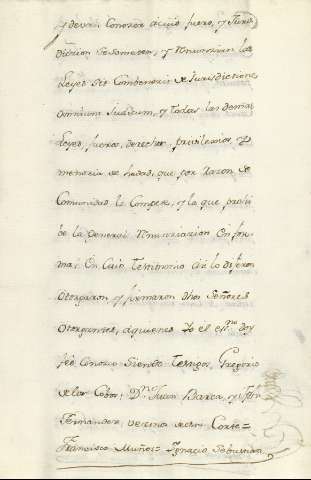 y devan Conozer a cuio fuero, y Juris
dizion se someten, y renunzian las
Leyes Sit Combenerit de Jurisdictione
omnium Judicum, y todas las demas
Leyes, fueros, derechos, privilexios, y
que por razon de
Comunidad le Compete, y la que proi
de la General renunziazion en for
ma: En cuio Testimonio asi lo dijeron
otorgaron y firmaron dhos Señores
otorgantes, a quienes Yo el essno doy
feè Conozco siendo testigos, Gregorio
de los Cobos; Dn Juan Barca, y
Fernandez, vezinos de esta Corte=
Francisco Muñoz= Ygnacio Sebastian